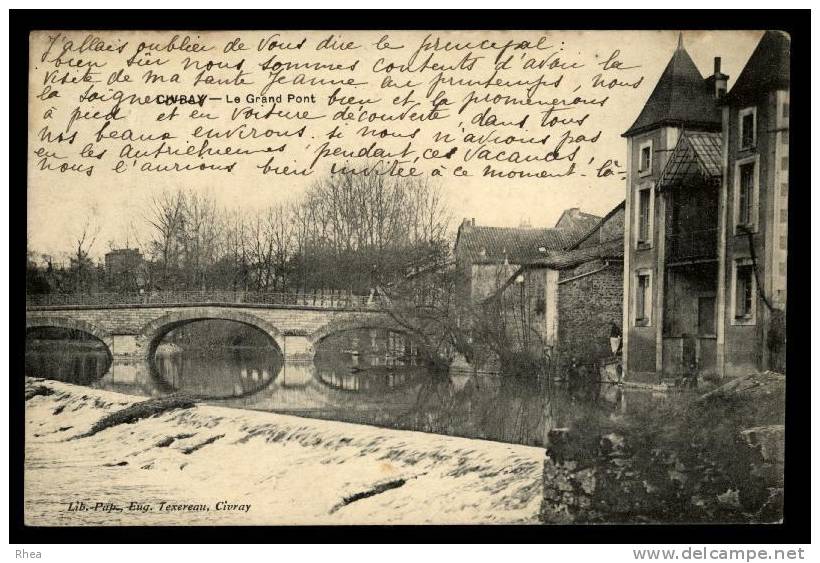 J'allais oublier de vous dire le principal :
bien sûr nous sommes contents d'avoir la
visite de ma tante Jeanne au printemps, nous
la soignerons bien et la promènerons
CIVRAY — Le Grand Pont
à pied et en voiture découverte, dans tous
nos beaux environs. si nous n'avions pas
eu les Autrichiennes pendant ces vacances,
nous l'aurions bien invitée à ce moment-là-
Lib.-Pap., Eug. Texereau, Civray
Rhea
www.delcampe.net